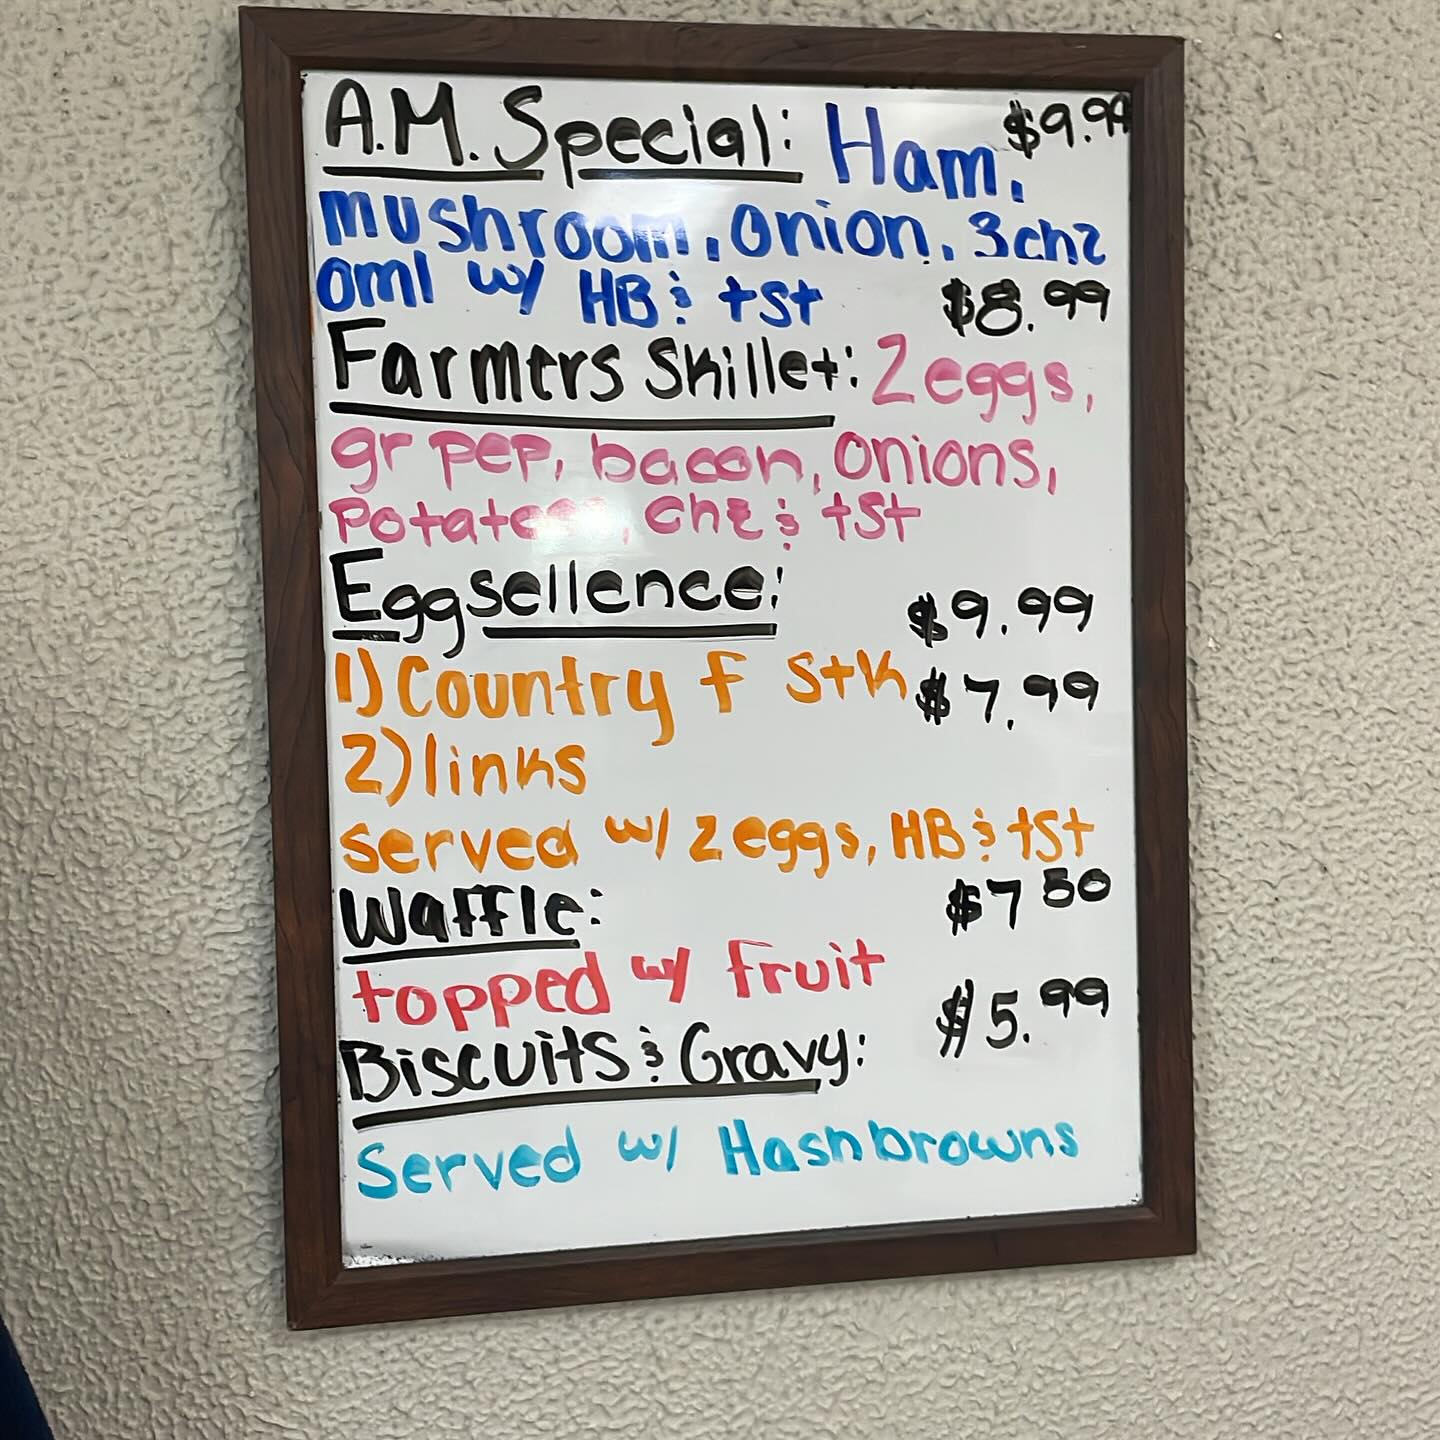 A.M. Special: Ham, $9.99
mushroom, onion, 3chz
oml w/ HB & tst $8.99
Farmers Skillet: 2 eggs,
gr pep, bacon, onions,
potatoes, chz & tst
Eggsellence: $9.99
1) Country f stk $7.99
2) links
served w/ 2 eggs, HB & tst
Waffle: $7.50
topped w/ fruit
Biscuits & Gravy: $5.99
Served w/ Hashbrowns